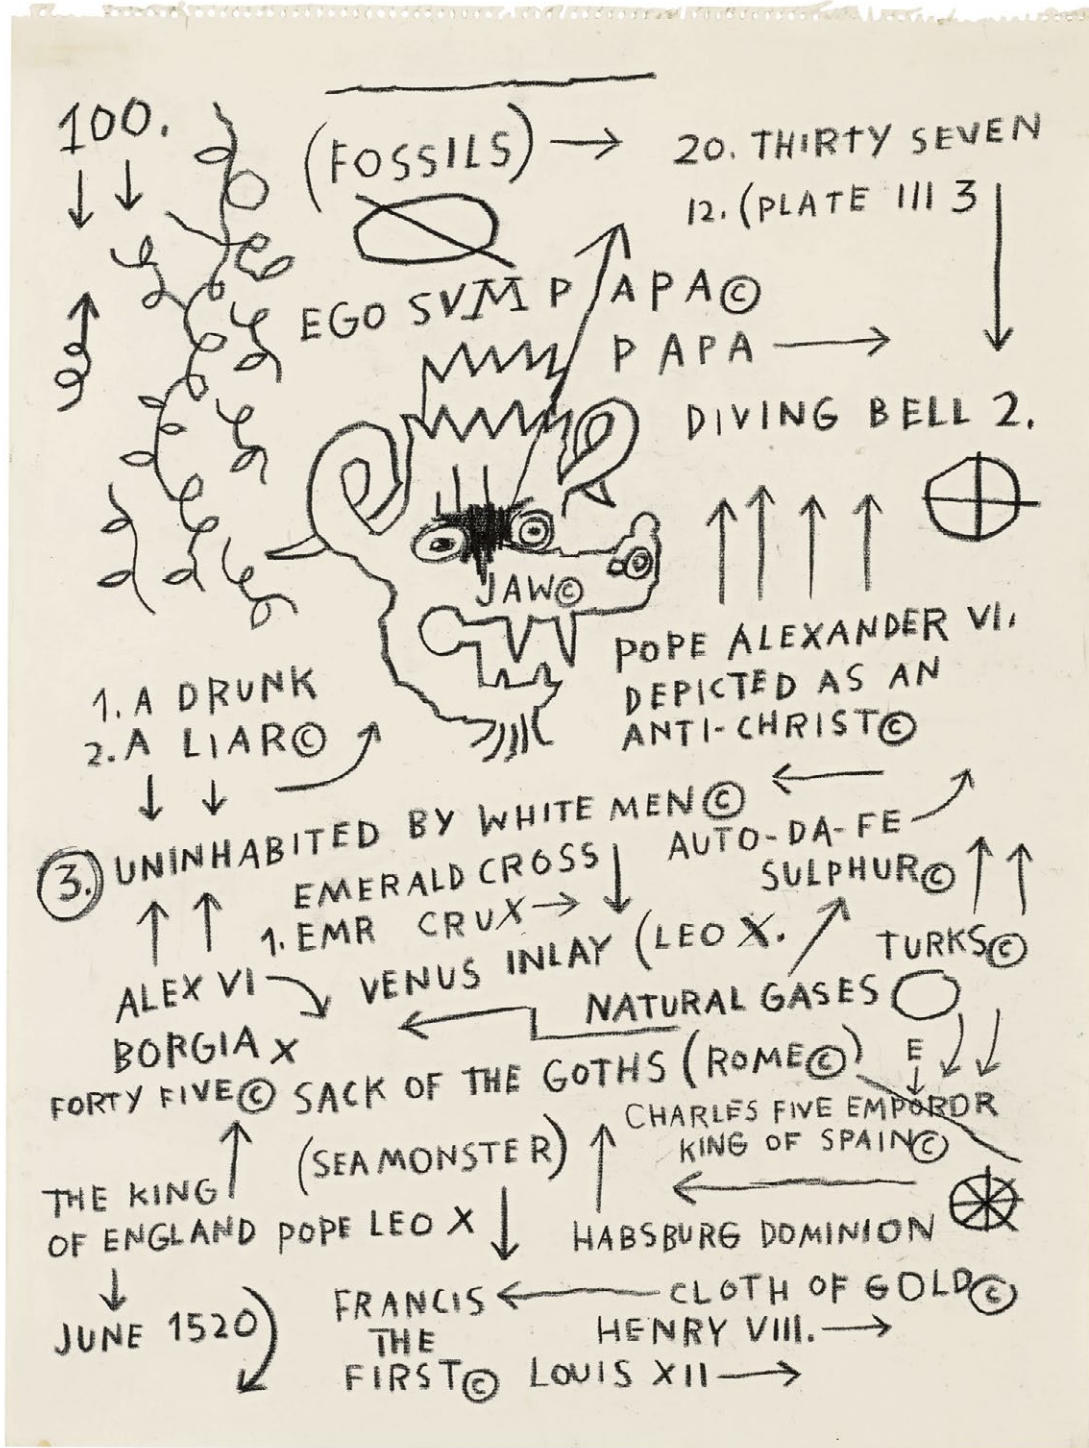 100.
(FOSSILS)
20. THIRTY SEVEN
12. (PLATE III 3
EGO SVM P APA©
PAPA
DIVING BELL 2.
JAW©
POPE ALEXANDER VI.
DEPICTED AS AN
ANTI-CHRIST©
1. A DRUNK
2. A LIAR©
3. UNINHABITED BY WHITE MEN©
AUTO-DA-FE
SULPHUR©
EMERALD CROSS
1. EMR CRUX
VENUS INLAY (LEO X.
TURKS©
ALEX VI
NATURAL GASES
BORGIA X
FORTY FIVE©
SACK OF THE GOTHS (ROME©)
E
CHARLES FIVE EMPOROR
KING OF SPAIN©
(SEA MONSTER)
THE KING
OF ENGLAND
POPE LEO X
HABSBURG DOMINION
JUNE 1520
FRANCIS
THE
FIRST©
CLOTH OF GOLD©
HENRY VIII.
LOUIS XII